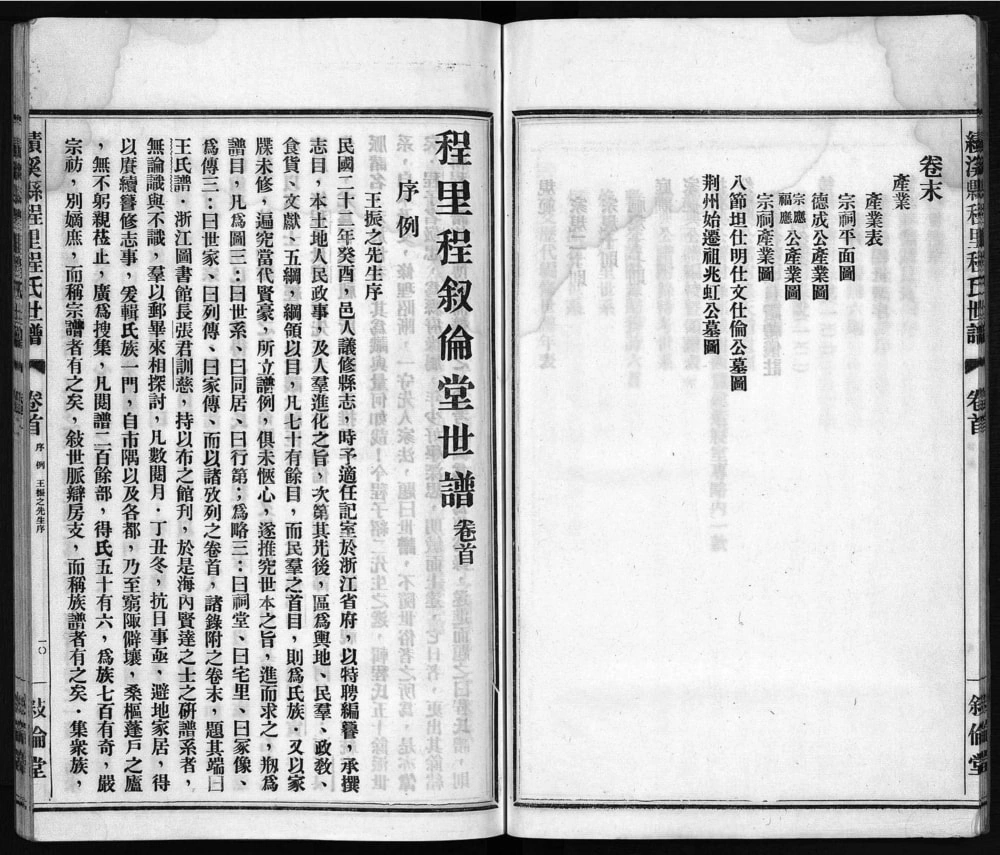 績溪縣程里程氏世譜
卷首
敍倫堂
卷末
產業
產業表
宗祠平面圖
德成公產業圖
宗應福應公產業圖
宗祠產業圖
八節坦仕明仕文仕倫公墓圖
荆州始遷祖兆虹公墓圖
程里程叙倫堂世譜 卷首
序例
王振之先生序
民國二十二年癸酉，邑人議修縣志，時予適任記室於浙江省府，以特聘編纂，承撰
志目，本土地人民政事，及人羣進化之旨，次第其先後，區爲輿地、民羣、政敎、
食貨、文獻、五綱，綱領以目，凡七十有餘目，而民羣之首目，則爲氏族．又以家
牒未修，遍究當代賢豪，所立譜例，俱未愜心，遂推究世本之旨，進而求之，剏爲
譜目，凡爲圖三：曰世系、曰同居、曰行第；爲略三：曰祠堂、曰宅里、曰冢像、
爲傳三：曰世家、曰列傳、曰家傳、而以諸攷列之卷首，諸錄附之卷末，題其端曰
王氏譜．浙江圖書館長張君訓慈，持以布之館刋，於是海內賢達之士之研譜系者，
無論識與不識，羣以郵畢來相探討，凡數閱月．丁丑冬，抗日事亟，避地家居，得
以賡續纂修志事，爰輯氏族一門，自市隅以及各都，乃至窮陬僻壤，桑樞蓬戶之廬
，無不躬親涖止，廣爲搜集，凡閱譜二百餘部，得氏五十有六，爲族七百有奇，嚴
宗祊，別嫡庶，而稱宗譜者有之矣，敍世脈辯房支，而稱族譜者有之矣．集衆族，
績溪縣程里程氏世譜
卷首
序例 王振之先生序
一〇
敍倫堂